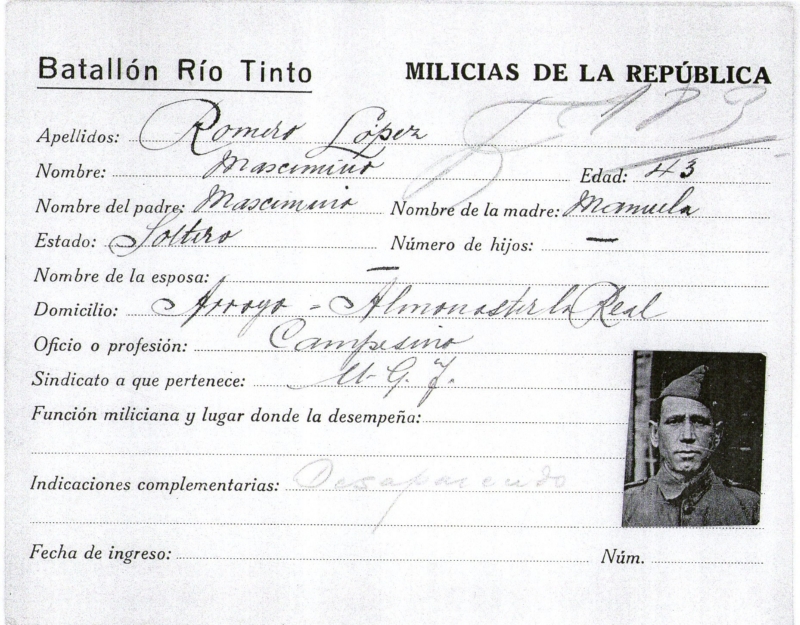 Batallón Río Tinto MILICIAS DE LA REPÚBLICA
Apellidos: Romero López
Nombre: Mascimino Edad: 43
Nombre del padre: Mascimino Nombre de la madre: Manuela
Estado: Soltero Número de hijos: —
Nombre de la esposa: —
Domicilio: Arroyo - Almonaster la Real
Oficio o profesión: Campesino
Sindicato a que pertenece: U.G.T.
Función miliciana y lugar donde la desempeña:
Indicaciones complementarias: Desaparecido
Fecha de ingreso: Núm.